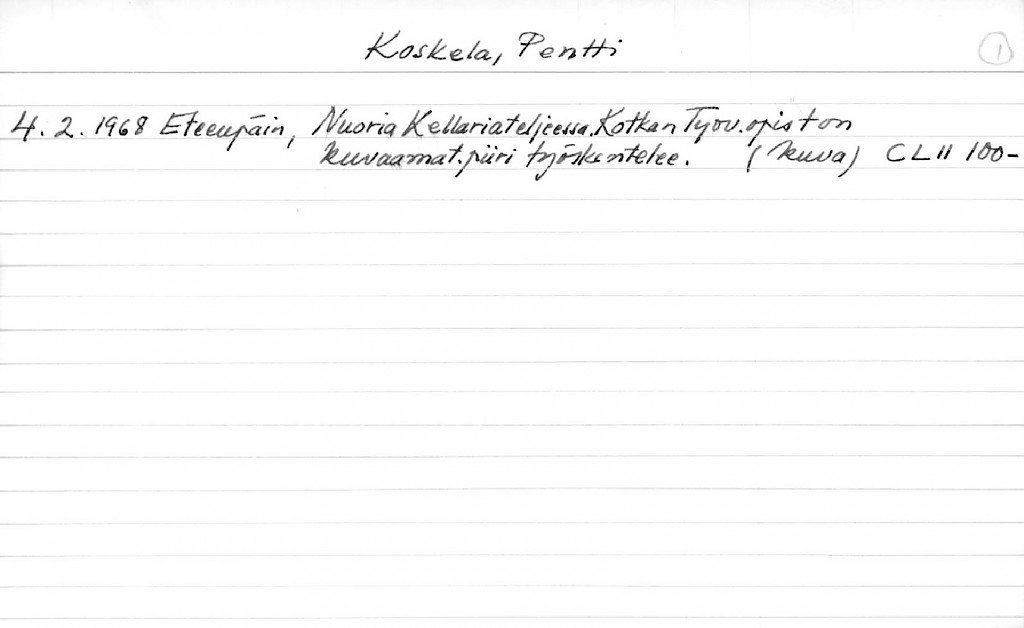 Koskela, Pentti
1
4. 2. 1968 Eteenpäin, Nuoria Kellariateljeessa, Kotkan Työv.opiston
kuvaamat.piiri työskentelee. (kuva) CLII 100-